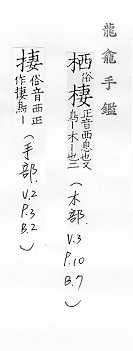 龍龕手鑑
栖俗棲正音西息也又
鳥ー木ー也三
(木部.V.3 P.10 B.7)
捿俗音西正
作捿鳥ー
(手部.V.2 P.3 B.2)